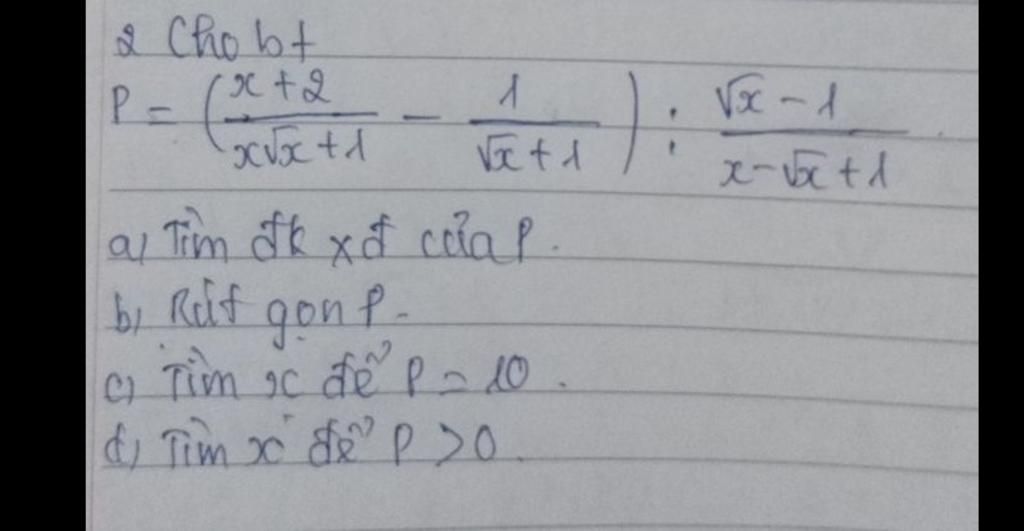 2 Cho bt
P = (x + 2 / x√x + 1 - 1 / √x + 1) : √x - 1 / x - √x + 1
a) Tìm đk xđ của P.
b) Rút gọn P.
c) Tìm x để P = 10.
d) Tìm x để P > 0.